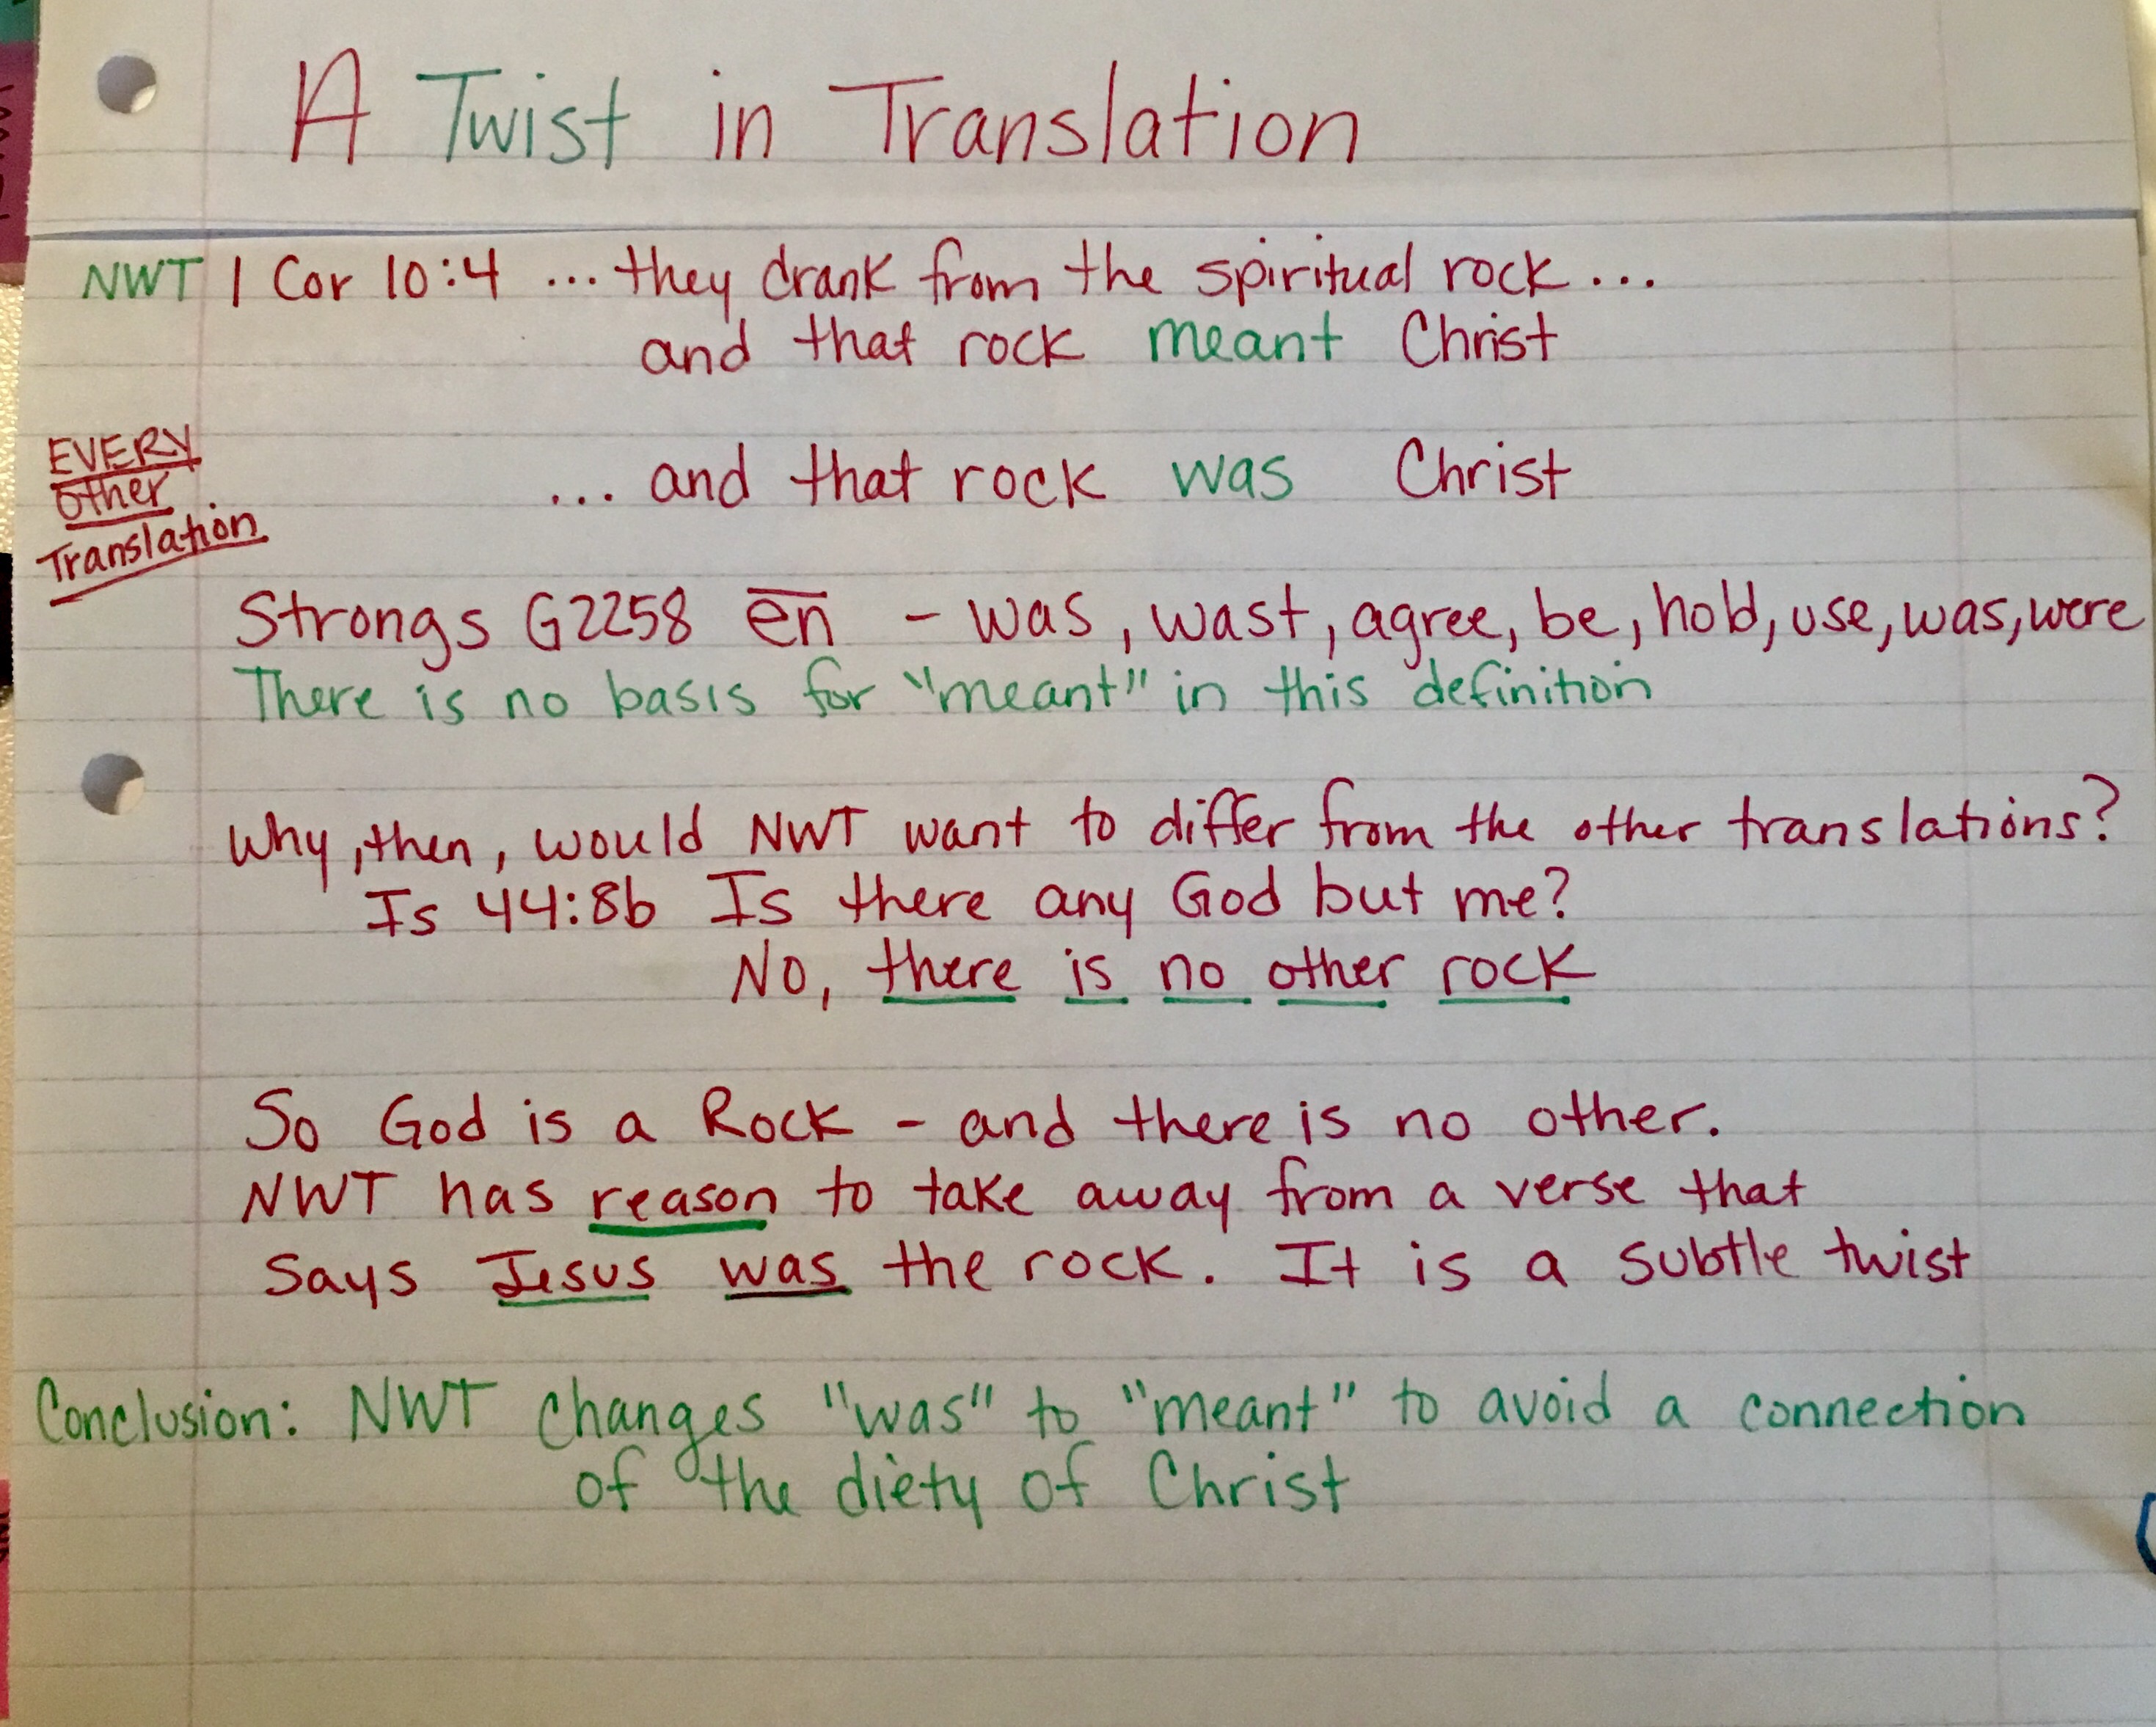 A Twist in Translation
NWT 1 Cor 10:4 ... they drank from the spiritual rock...
and that rock meant Christ
EVERY
other
Translation
... and that rock was Christ
Strongs G2258 ēn - was, wast, agree, be, hold, use, was, were
There is no basis for "meant" in this definition
Why, then, would NWT want to differ from the other translations?
Is 44:8b Is there any God but me?
No, there is no other rock
So God is a Rock - and there is no other.
NWT has reason to take away from a verse that
says Jesus was the rock. It is a subtle twist
Conclusion: NWT changes "was" to "meant" to avoid a connection
of the diety of Christ